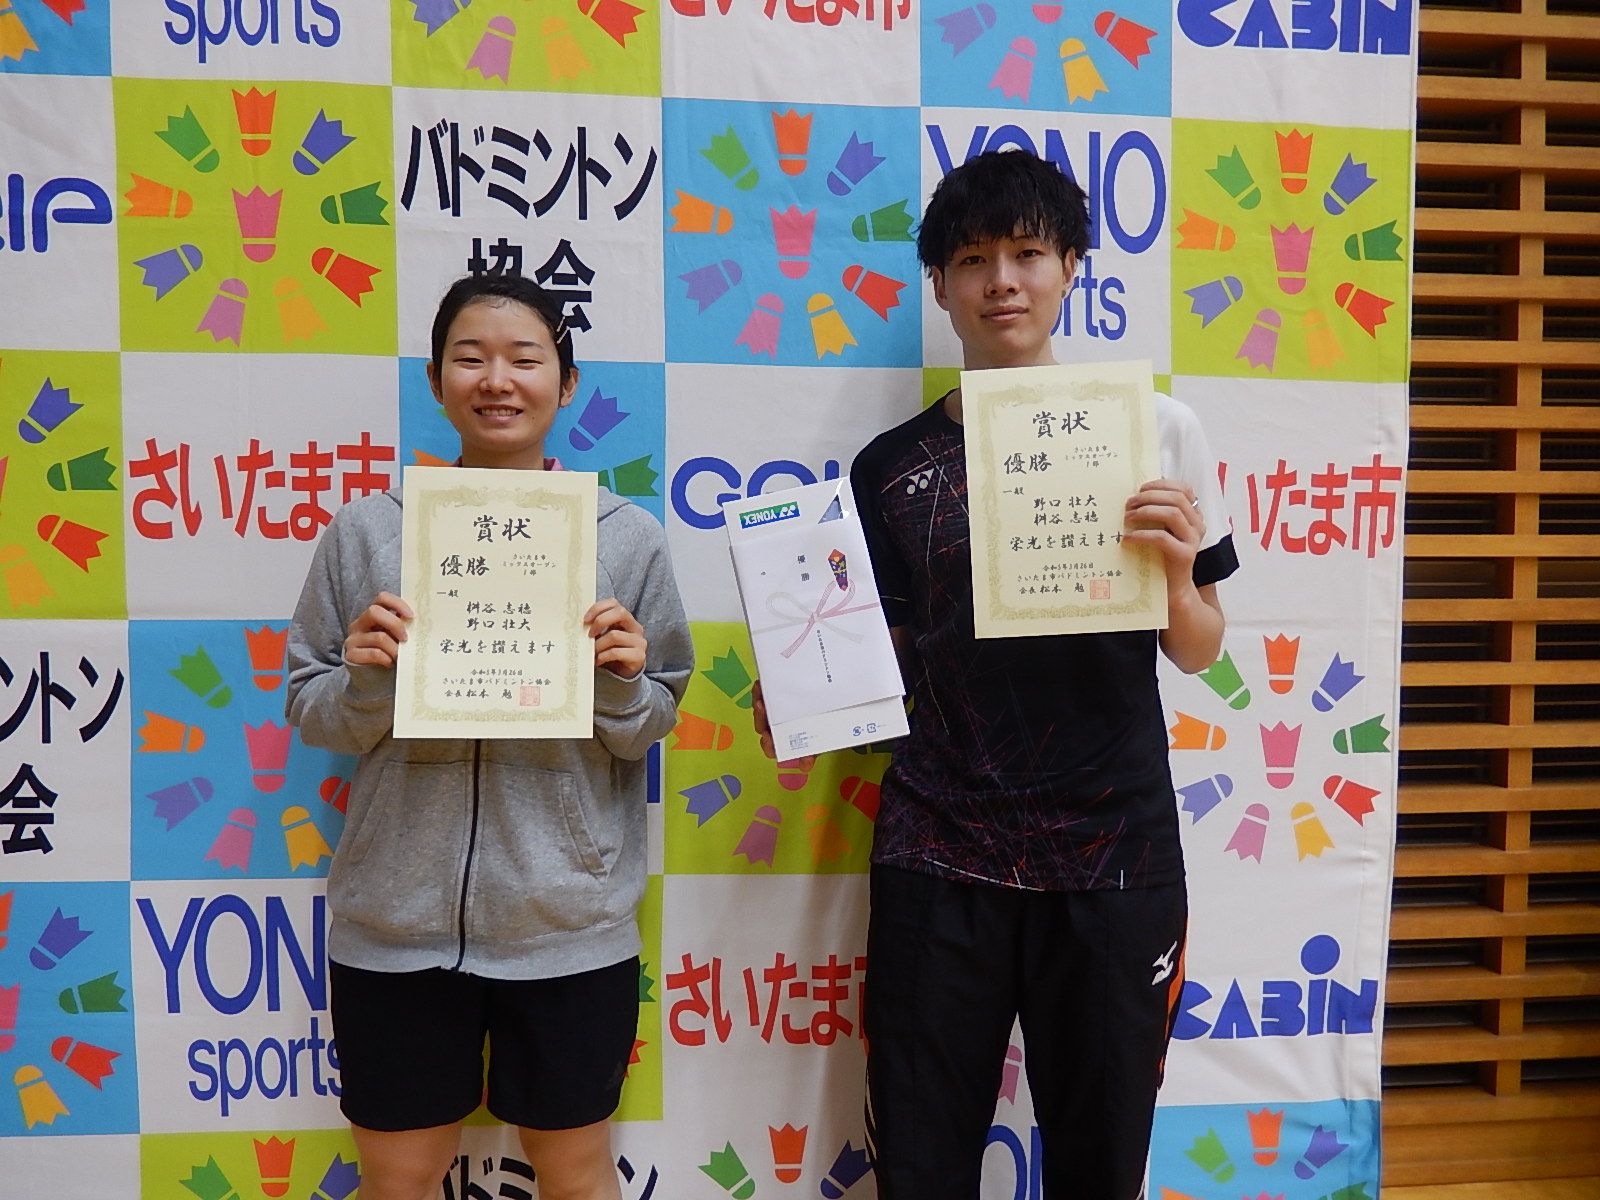 sports
さいたま市
CABIN
バドミントン
協会
YONO
sports
GOL
さいたま市
さいたま市
ントン
会
YON
sports
さいたま市
CABIN
バドミン
YONEX
優勝
賞状
優勝
さいたま市
ミックスオープン
1部
一般
桝谷 志穂
野口 壮大
栄光を讃えます
令和5年3月26日
さいたま市バドミントン協会
会長 松本 勉
賞状
優勝
さいたま市
ミックスオープン
1部
一般
野口 壮大
桝谷 志穂
栄光を讃えます
令和5年3月26日
さいたま市バドミントン協会
会長 松本 勉